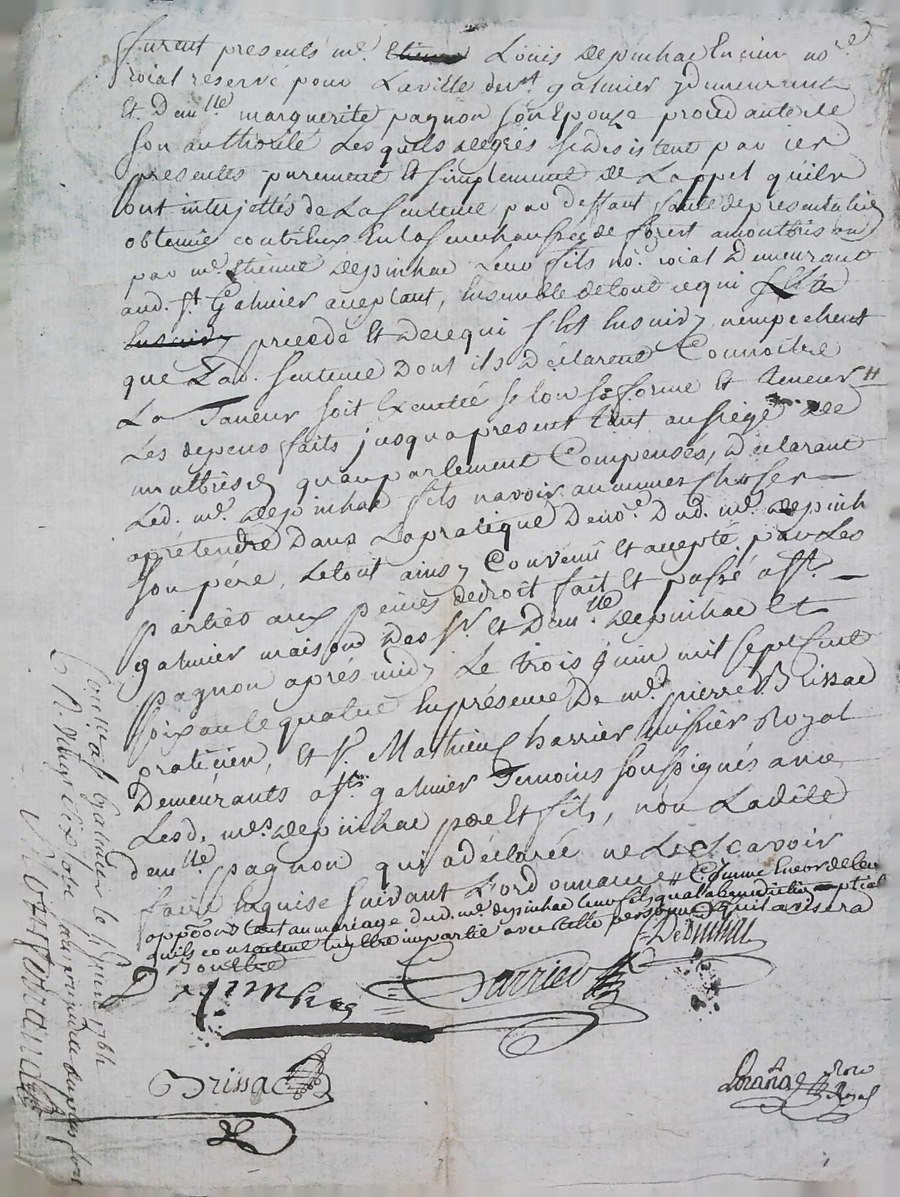 furent presents me. Louis depinhac Encien no.re
roial reservé pour La ville de st. galmier y demeurant
Et. Dem.lle marguerite pagnon son Epouze procedante de
son authorité Lesquels degrés se desistent par ces
presentes purement Et simplement de L'appel qu'ils
ont interjettés de La sentence par deffaut faute de presentation
obtenüe contr'eux En la senechaussée de forest a montbrison
par me. Etienne depinhac Leur fils no.re roial Demeurant
aud. st. Galmier acceptant, Ensemble de tout ce qui L'a
precedé Et de ce qui s'est Ensuivy, n'empechent
que Lad. sentence dont ils déclarent Connoitre
La Taneur soit Executée selon sa forme Et teneur #
Les depens faits jusqu'apresent tant au siege de
montbrison qu'au parlement Compensés, déclarant
Led. me. depinhac fils n'avoir aucunes choses
a prétendre Dans La pratique De no.re Dud. me. depinhac
son pére, Le tout ainsy Convenu Et accepté par Les
parties aux peines de droit fait Et passé a st.
galmier maison Des sr. Et Dem.lle depinhac Et
pagnon aprés midy Le trois juin mil sept Cent
soixante quatre En présence De me. pierre Brissac
praticien, Et sr. Mathieu Charrier huissier Royal
Demeurants a st. galmier Temoins soussignés avec
Lesd. mes. depinhac pére Et fils, non Ladite
dem.lle pagnon qui a déclarée ne Le Scavoir
faire Enquise suivant L'ordonnance # Comme Encor de leur
oppo͞on tant au mariage dud. me. depinhac leur fils qu'a la benediction nuptial
qu'ils consentent luy être impartie avec telle personne qu'il avisera
Depinhac
Boulbre
Depinhac Charrier
Brissac
no.re
Royal
Con.llé a st Galmier le six juin 1764
R. vingt six sols